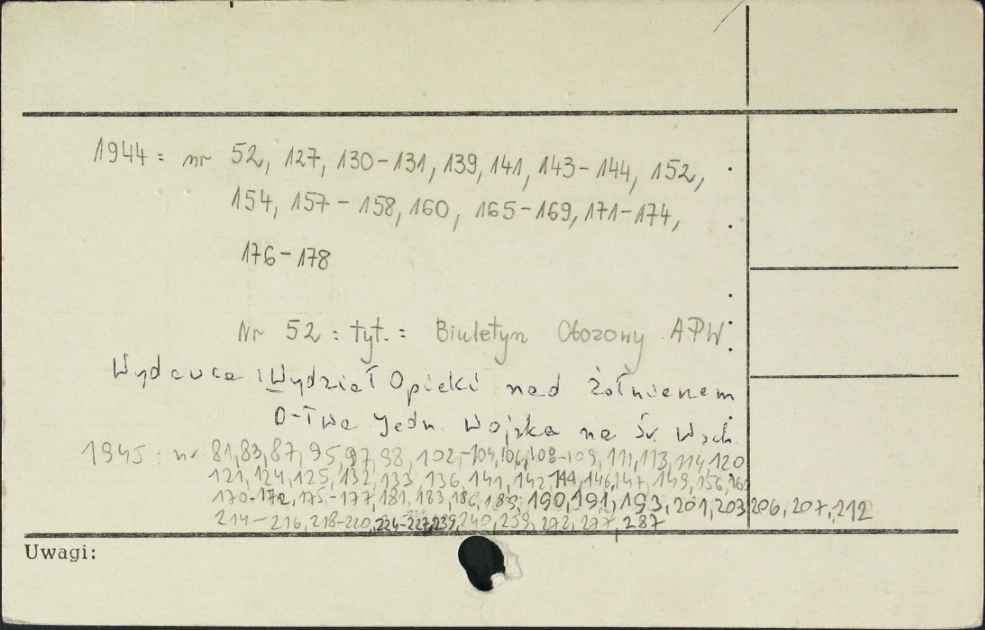 1944 = nr 52, 127, 130-131, 139, 141, 143-144, 152,
154, 157-158, 160, 165-169, 171-174,
176-178
Nr 52 = tyt. = Biuletyn Obozowy APW.
Wydawca : Wydział Opieki nad Żołnierzem
D-Twa Jedn. Wojska na Śr. Wsch.
1945 = nr 81, 83, 87, 95, 97, 98, 102-104, 106, 108-109, 111, 113, 114, 120
121, 124, 125, 132, 133, 136, 141, 142, 144, 146, 147, 149, 156,
170-172, 175-177, 181, 183, 186, 189, 190, 191, 193, 201, 203, 206, 207, 212
214-216, 218-220, 224-227, 239, 240, 259, 272, 277, 287
Uwagi: